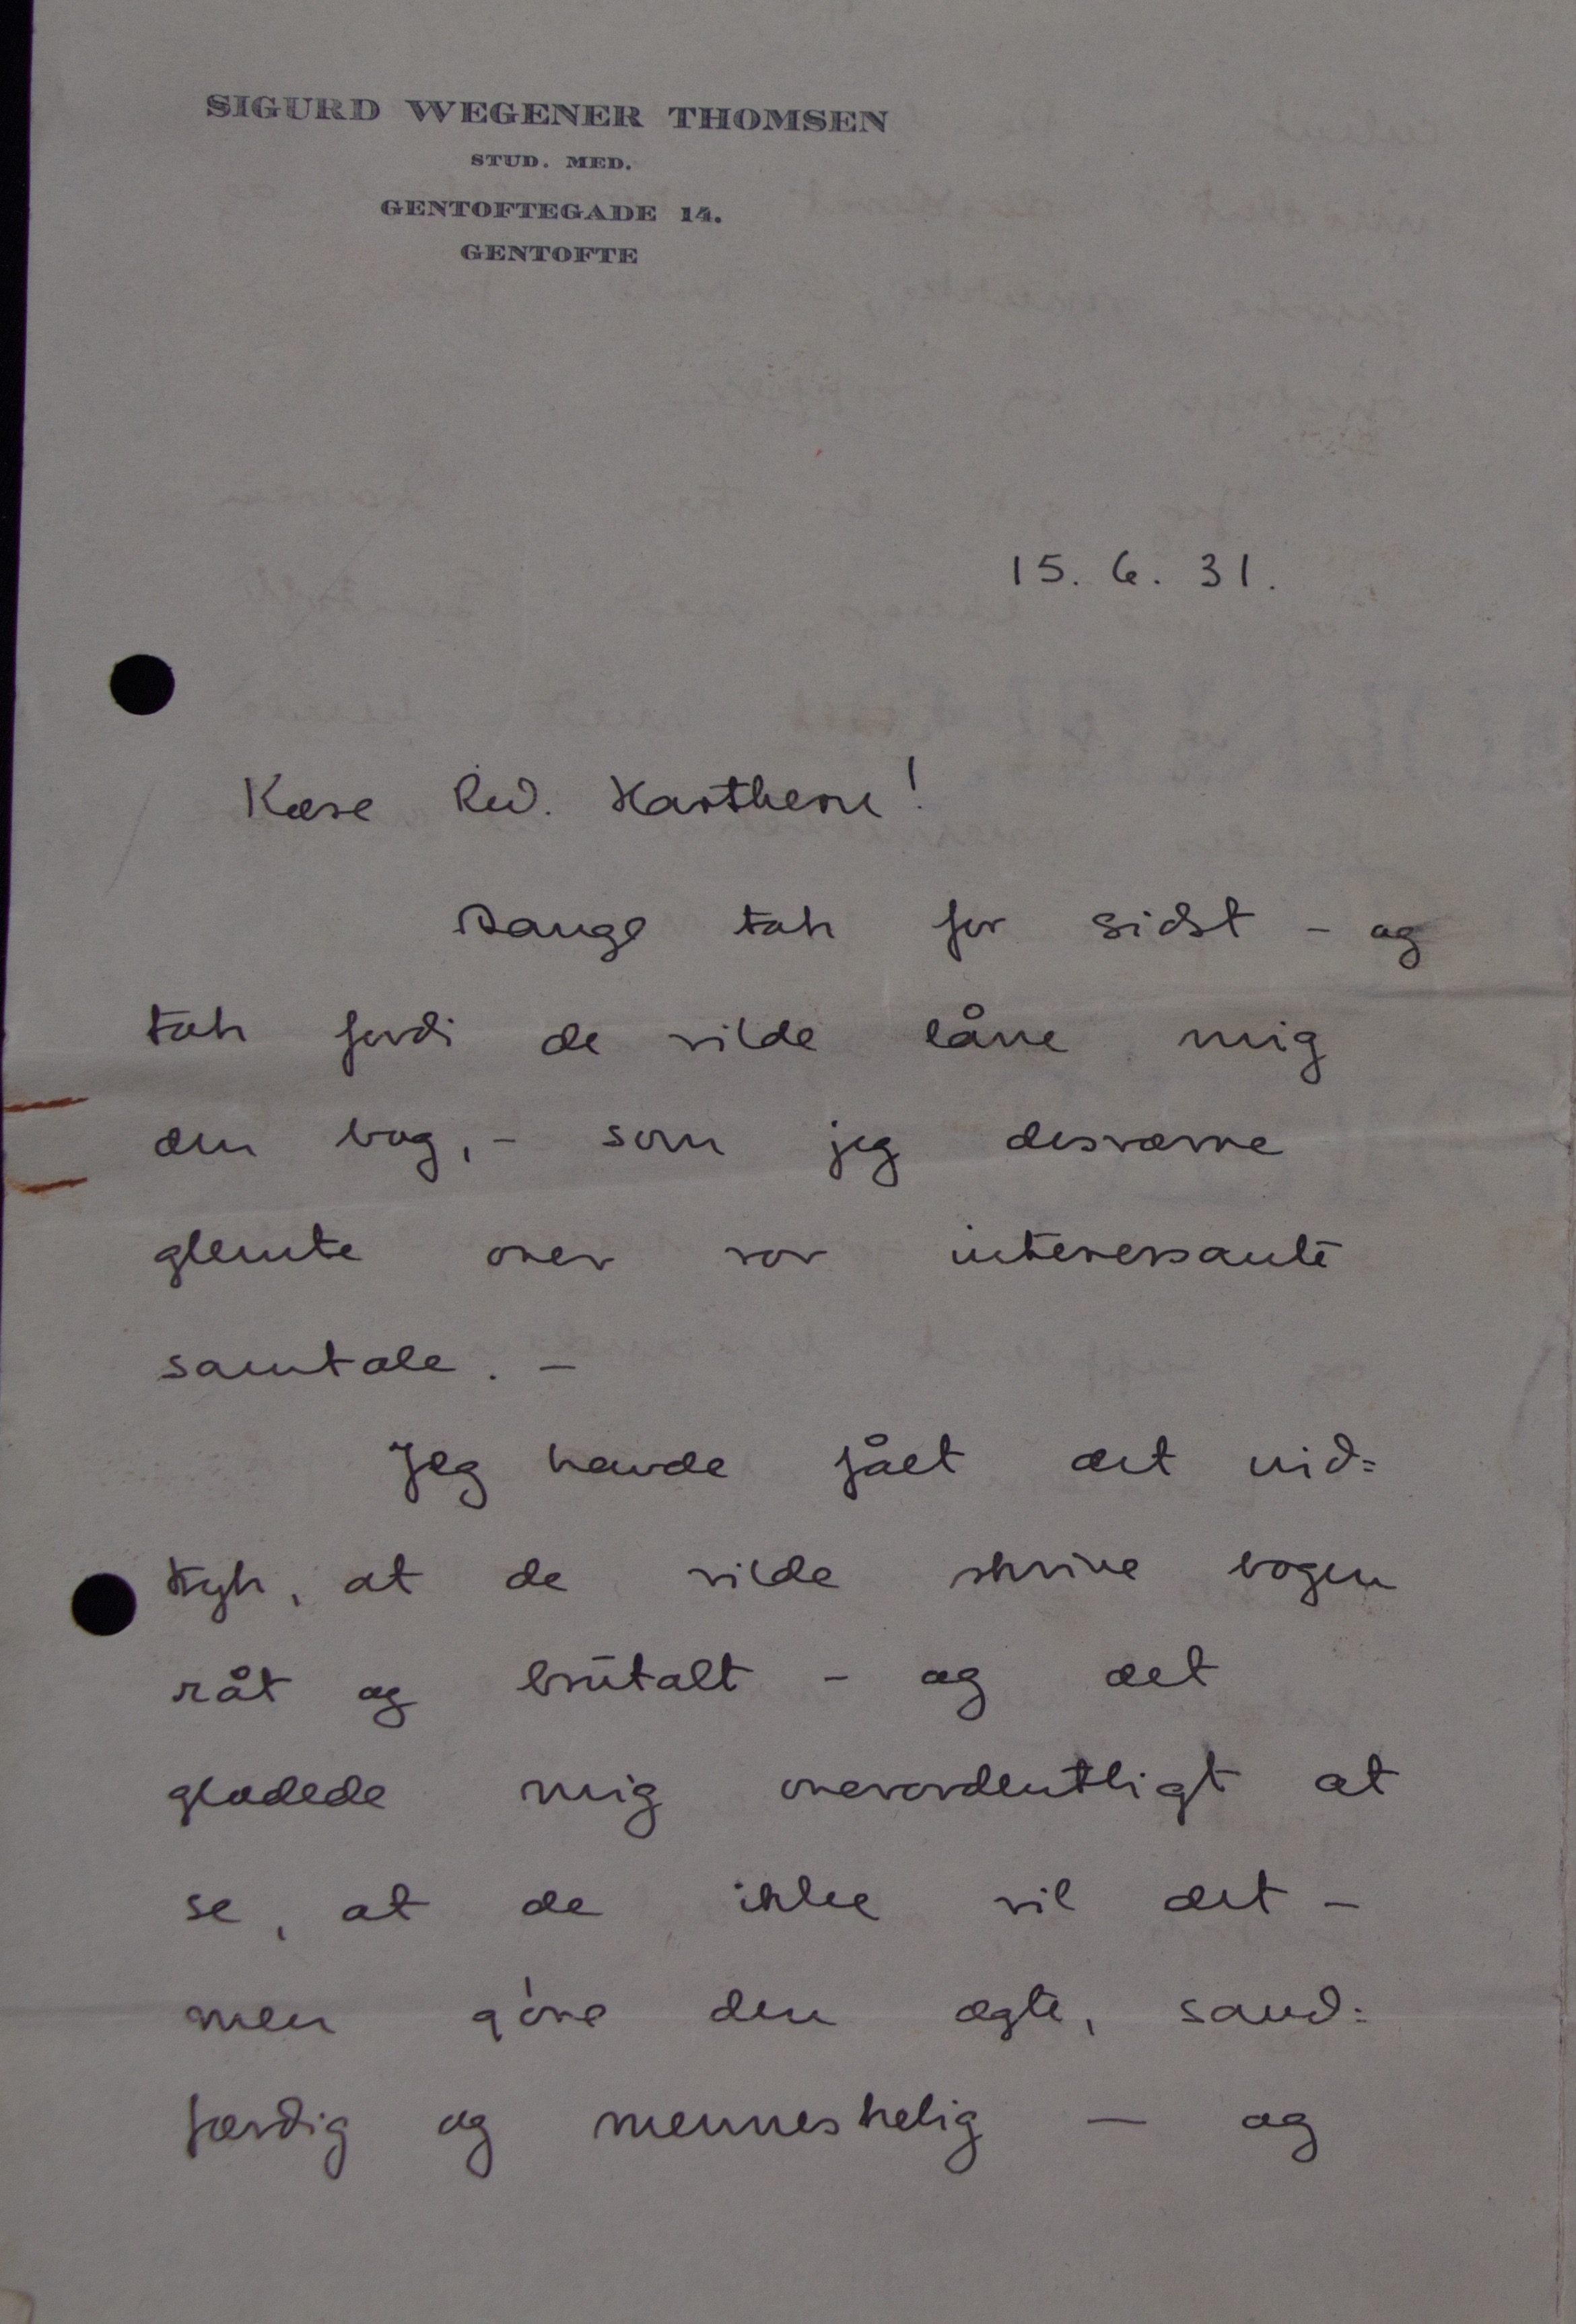 SIGURD WEGENER THOMSEN
STUD. MED.
GENTOFTEGADE 14.
GENTOFTE
15. 6. 31.
Kære Red. Hartkern!
Mange tak for sidst - og
tak fordi de vilde låne mig
den bog, - som jeg desværre
glemte over vor interessante
samtale. -
Jeg havde fået det ind=
tryk, at de vilde skrive bogen
råt og brutalt - og det
glædede mig overordentligt at
se, at de ikke vil det -
men gøre den ægte, sand=
færdig og menneskelig - og